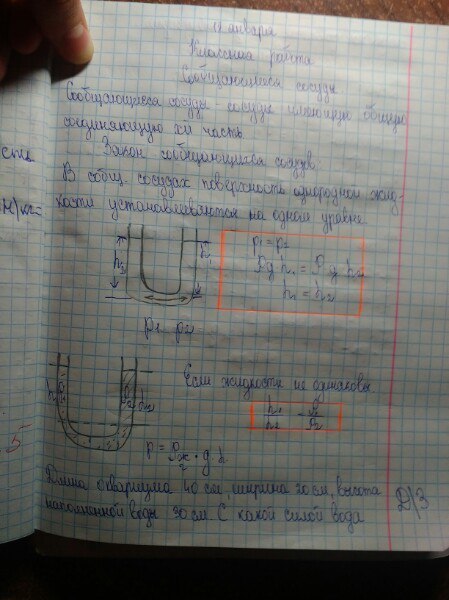 января
Классная работа
Сообщающиеся сосуды
Сообщающиеся сосуды сосуды имеющую общую
соединяющую их часть.
Закон сообщающихся сосудов:
В сообщ. сосудах поверхность однородной жид-
кости устанавливаются на одном уровне
p₁ = p₂
ρ g h₁ = ρ g h₂
h₁ = h₂
p₁ p₂
Если жидкости не одинаковы
p = ρж · g · h
Длина аквариума 40 см, ширина 20 см, высота
наполнанной воды 30 см. С какой силой вода
Д/З